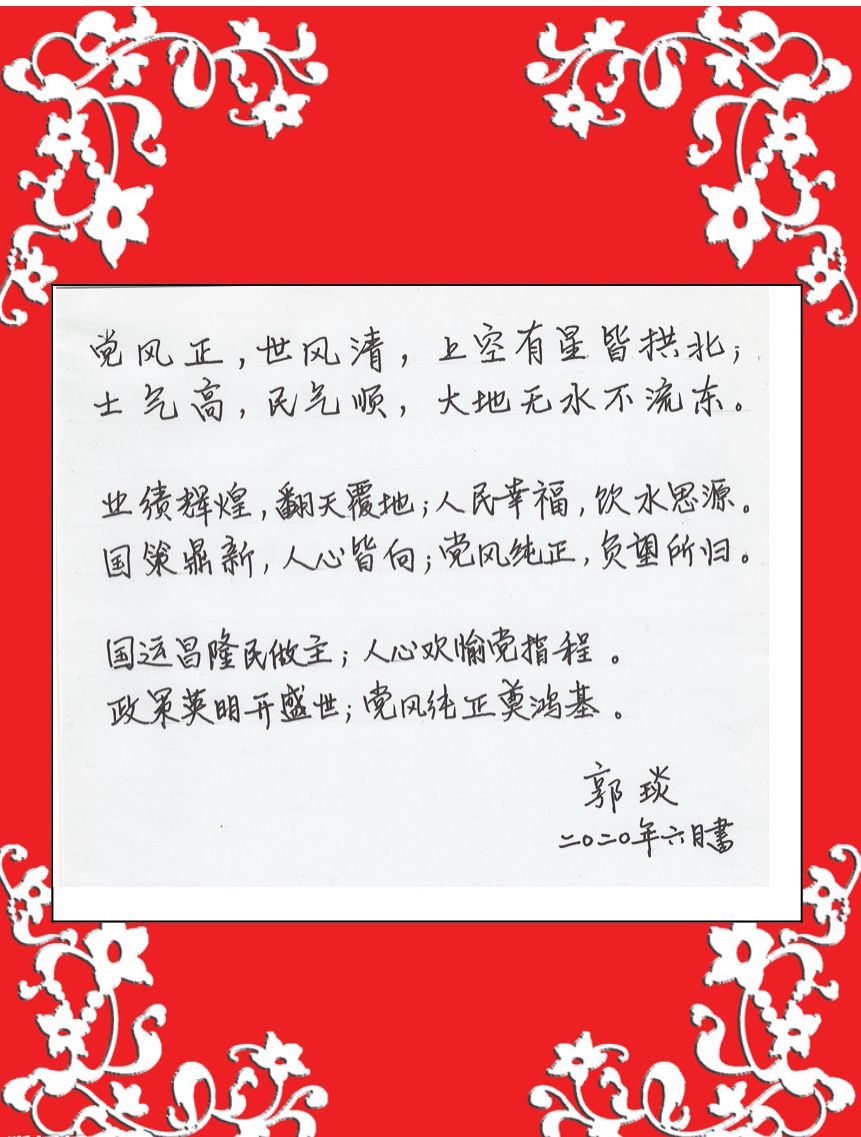 党风正，世风清，上空有星皆拱北；
士气高，民气顺，大地无水不流东。
业绩辉煌，翻天覆地；人民幸福，饮水思源。
国策鼎新，人心皆向；党风纯正，负望所归。
国运昌隆民做主；人心欢愉党指程。
政策英明开盛世；党风纯正奠鸿基。
郭琰
二〇二〇年六月書